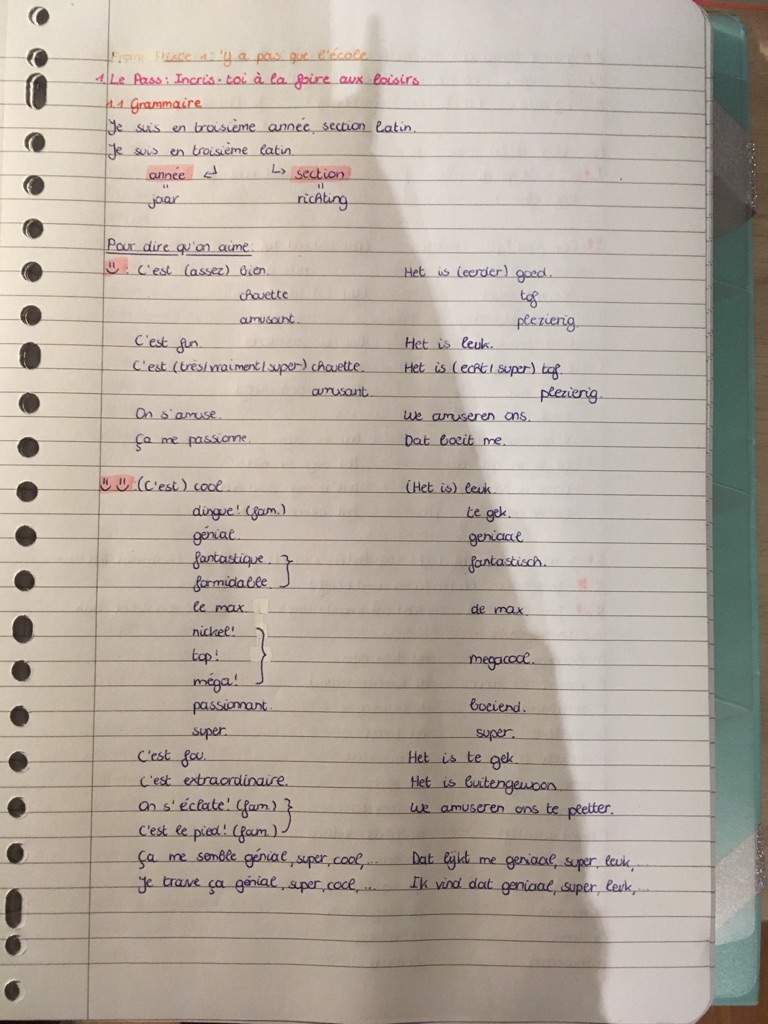 1: 'y a pas que l'école
1 Le Pass: Incris-toi à la foire aux loisirs
1.1 Grammaire
Je suis en troisième année, section latin.
Je suis en troisième latin
année ↲ ↳ section
" "
jaar richting
Pour dire qu'on aime.
☺: C'est (assez) bien. Het is (eerder) goed.
chouette tof
amusant. plezierig
C'est fun. Het is leuk.
C'est (très/vraiment/super) chouette. Het is (echt/super) tof.
amusant. plezierig.
On s'amuse. We amuseren ons.
Ça me passionne. Dat boeit me.
☺☺: (C'est) cool. (Het is) leuk.
dingue! (fam.) te gek.
génial. geniaal
fantastique } fantastisch.
formidable
le max de max
nickel!
top! } megacool.
méga!
passionnant. boeiend.
super. super.
C'est fou. Het is te gek.
C'est extraordinaire. Het is buitengewoon
On s'éclate! (fam) } We amuseren ons te pletter.
C'est le pied! (fam.)
Ça me semble génial, super, cool,... Dat lijkt me geniaal, super, leuk,...
Je trouve ça génial, super, cool,... Ik vind dat geniaal, super, leuk,...